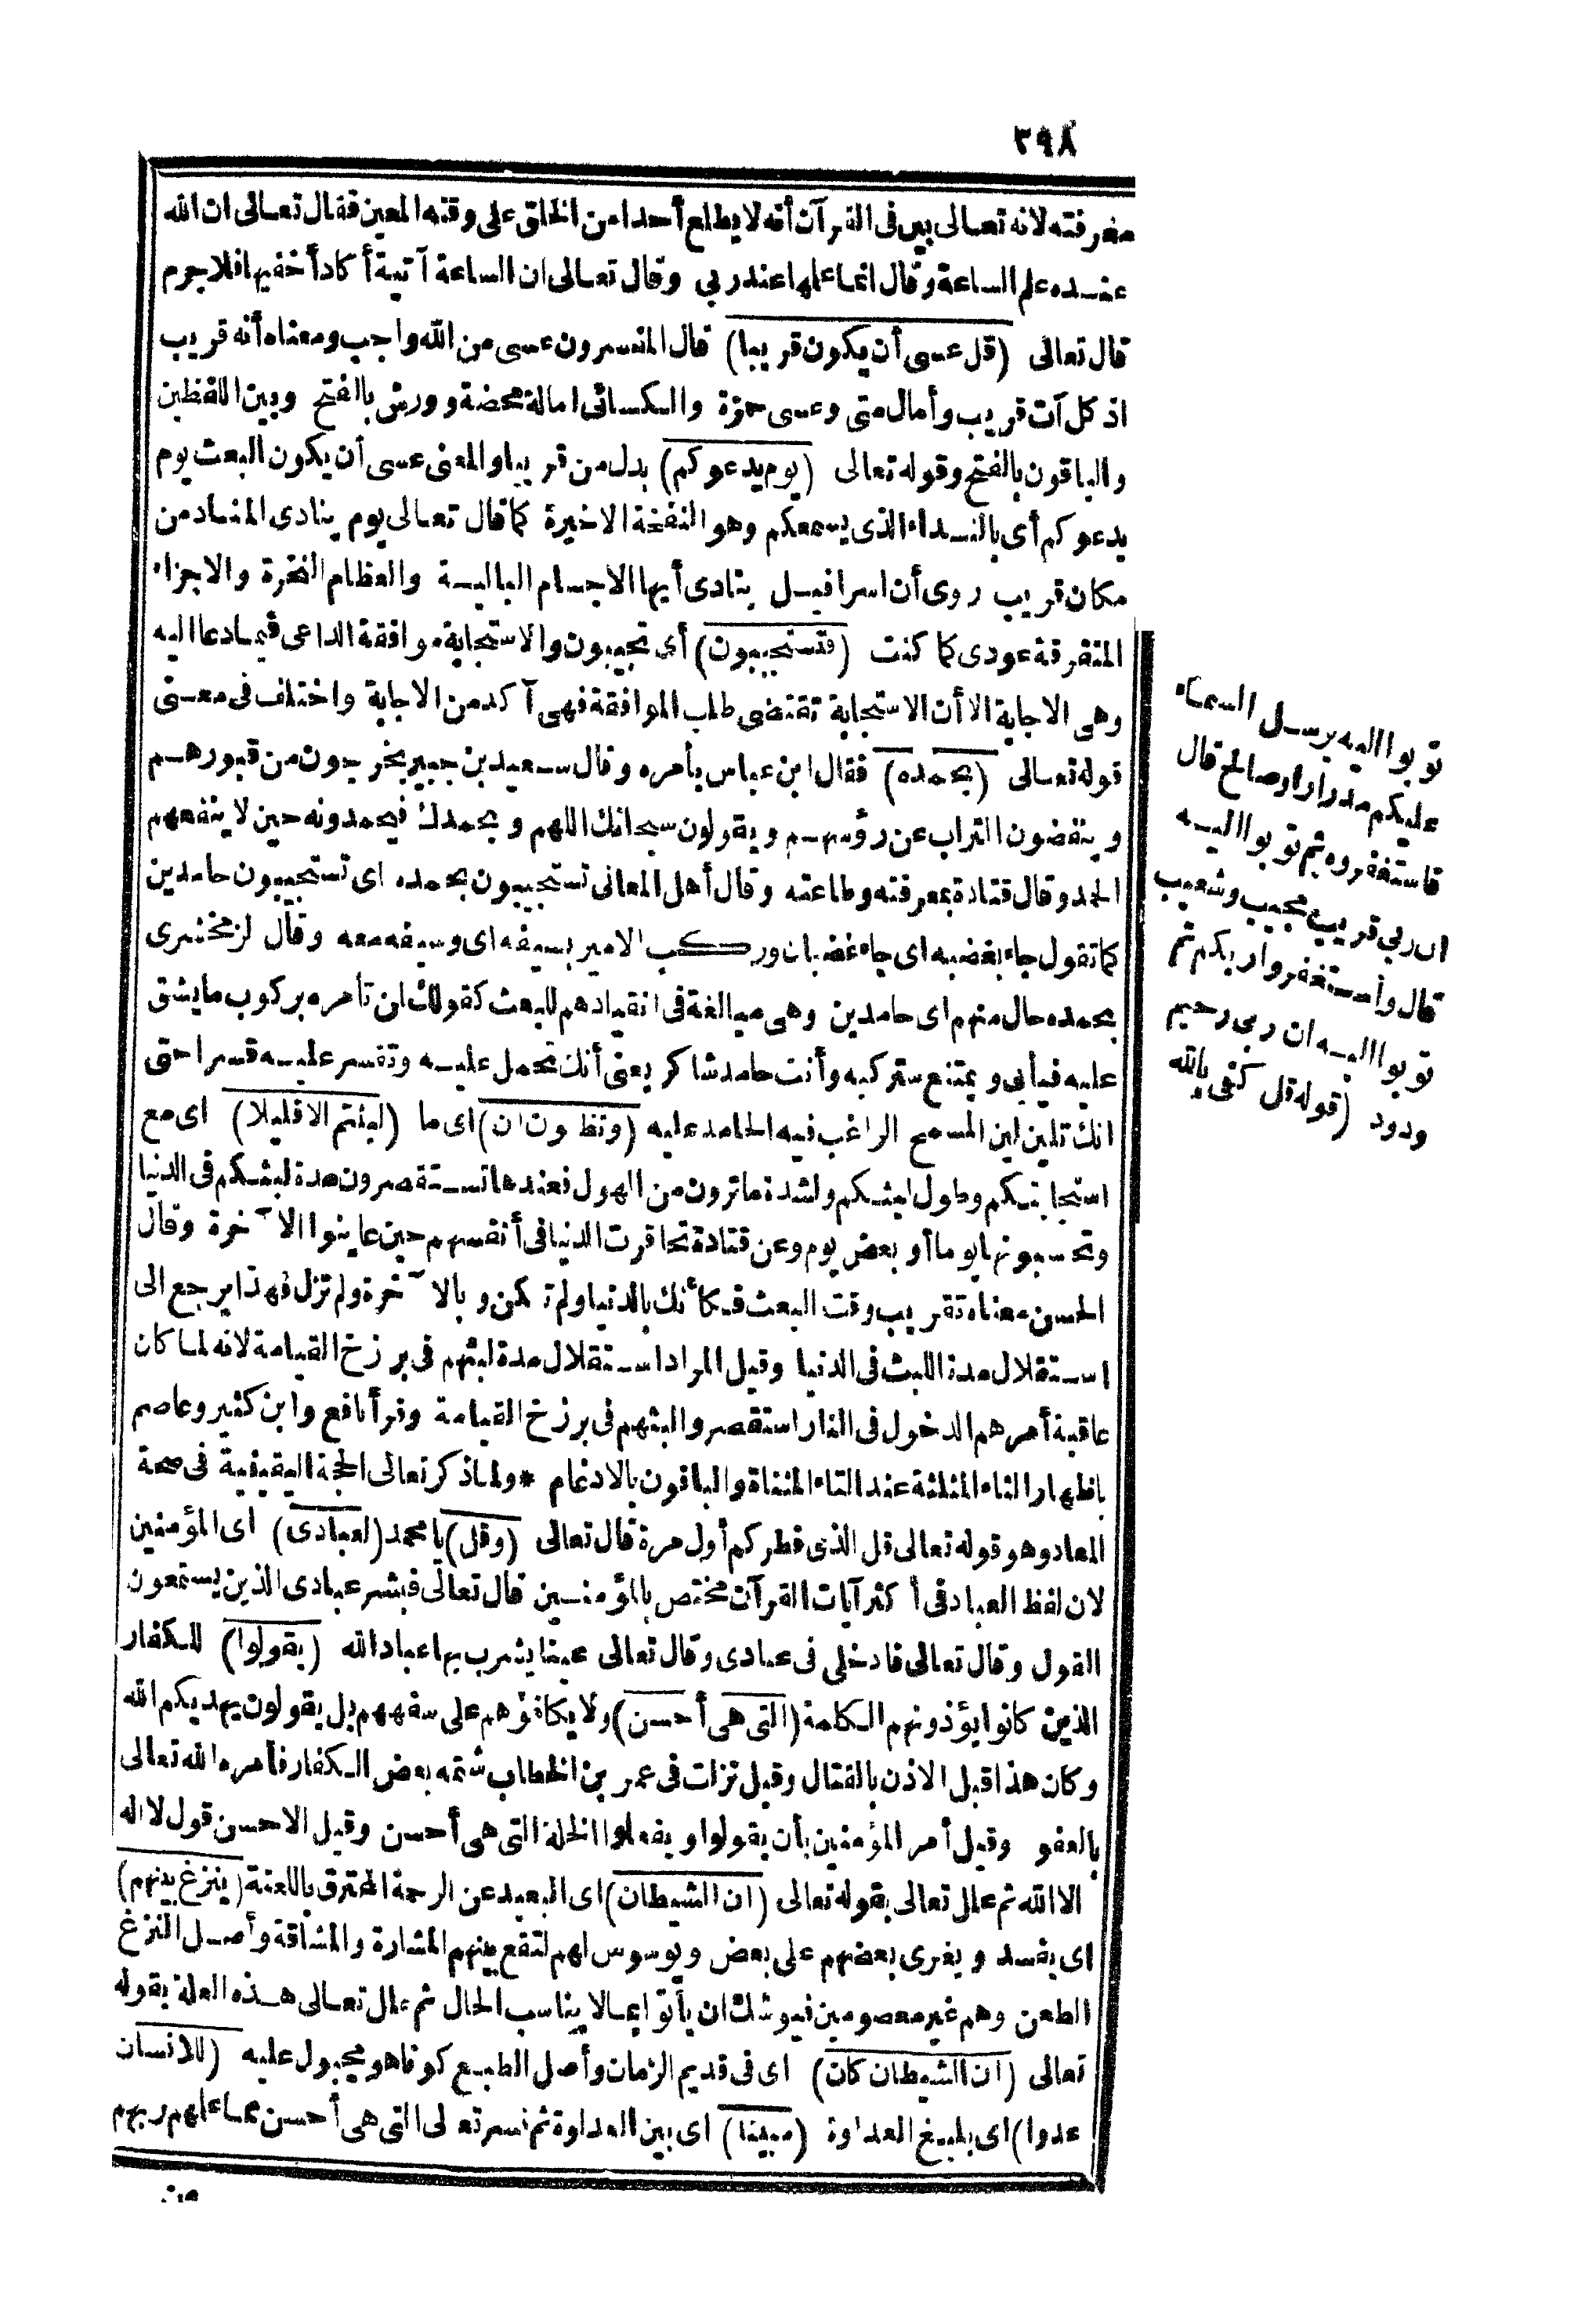 ٢٩٨
معرفته لانه تعالى بين فى القرآن أنه لا يطلع أحدا من الخلق على وقته المعين فقال تعالى ان الله
عنده علم الساعة وقال انما علمها عند ربي وقال تعالى ان الساعة آتية أكاد أخفيها فلا جرم
قال تعالى (قل عسى أن يكون قريبا) قال المفسرون عسى من الله واجب ومعناه أنه قريب
اذ كل آت قريب وأمال متى وعسى حمزة والكسائى امالة محضة وورش بالفتح وبين اللفظين
والباقون بالفتح وقوله تعالى (يوم يدعوكم) بدل من قريبا والمعنى عسى أن يكون البعث يوم
يدعوكم أى بالنداء الذى يسمعكم وهو النفخة الاخيرة كما قال تعالى يوم ينادى المناد من
مكان قريب روى أن اسرافيل ينادى أيها الاجسام البالية والعظام النخرة والاجزاء
المتفرقة عودى كما كنت (فتستجيبون) أى تجيبون والاستجابة موافقة الداعى فيما دعا اليه
وهى الاجابة الا أن الاستجابة تقتضى طلب الموافقة فهى آكد من الاجابة واختلف فى معنى
قوله تعالى (بحمده) فقال ابن عباس بأمره وقال سعيد بن جبير يخرجون من قبورهم
وينفضون التراب عن رؤسهم ويقولون سبحانك اللهم وبحمدك فيحمدونه حين لا ينفعهم
الحمد وقال قتادة بمعرفته وطاعته وقال أهل المعانى تستجيبون بحمده اى تستجيبون حامدين
كما تقول جاء بغضبه اى جاء غضبان وركب الامير بسيفه اى وسيفه معه وقال لزمخشرى
بحمده حال منهم اى حامدين وهى مبالغة فى انقيادهم للبعث كقولك لمن تأمره بركوب ما يشق
عليه فيأبى ويمتنع ستركبه وأنت حامد شاكر يعنى أنك تحمل عليه وتقسر عليه قسرا حتى
انك تلين لين المسمح الراغب فيه الحامد عليه (وتظنون ان) اى ما (لبثتم الا قليلا) اى مع
استجابتكم وطول لبثكم ولشدة ما ترون من الهول فعندها تستقصرون مدة لبثكم فى الدنيا
وتحسبونها يوما أو بعض يوم وعن قتادة تحاقرت الدنيا فى أنفسهم حين عاينوا الآخرة وقال
الحسن معناه تقريب وقت البعث فكأنك بالدنيا ولم تكن وبالآخرة ولم تزل فهذا يرجع الى
استقلال مدة اللبث فى الدنيا وقيل المراد استقلال مدة لبثهم فى برزخ القيامة لانه لما كان
عاقبة أمرهم الدخول فى النار استقصروا لبثهم فى برزخ القيامة وقرأ نافع وابن كثير وعاصم
باظهار الثاء المثلثة عند التاء المثناة والباقون بالادغام * ولما ذكر تعالى الحجة اليقينية فى صحة
المعاد وهو قوله تعالى قل الذى فطركم أول مرة قال تعالى (وقل) يا محمد (لعبادى) اى المؤمنين
لان لفظ العباد فى أكثر آيات القرآن مختص بالمؤمنين قال تعالى فبشر عبادى الذين يستمعون
القول وقال تعالى فادخلى فى عبادى وقال تعالى عينا يشرب بها عباد الله (يقولوا) للكفار
الذين كانوا يؤذونهم الكلمة (التى هى أحسن) ولا يكافؤهم على سفههم بل يقولون يهديكم الله
وكان هذا قبل الاذن بالقتال وقيل نزلت فى عمر بن الخطاب شتمه بعض الكفار فأمره الله تعالى
بالعفو وقيل أمر المؤمنين بأن يقولوا ويفعلوا الخلة التى هى أحسن وقيل الاحسن قول لا اله
الا الله ثم علل تعالى بقوله تعالى (ان الشيطان) اى البعيد عن الرحمة المحترق باللعنة (ينزغ بينهم)
اى يفسد ويغرى بعضهم على بعض ويوسوس لهم لتقع بينهم المشارة والمشاقة وأصل النزغ
الطعن وهم غير معصومين فيوشك ان يأتوا بما لا يناسب الحال ثم علل تعالى هذه العلة بقوله
تعالى (ان الشيطان كان) اى فى قديم الزمان وأصل الطبع كونا هو مجبول عليه (للانسان
عدوا) اى بليغ العداوة (مبينا) اى بين العداوة ثم فسر تعالى التى هى أحسن مما علمهم ربهم
توبوا اليه يرسل السماء
عليكم مدرارا وصالح قال
فاستغفروه ثم توبوا اليه
ان ربي قريب مجيب وشعيب
قال واستغفروا ربكم ثم
توبوا اليه ان ربي رحيم
ودود (قوله قل كفى بالله